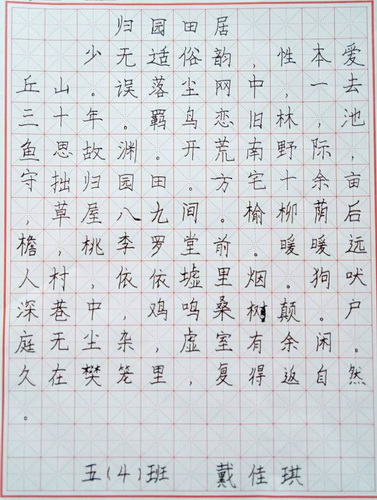 归园田居
少无适俗韵，性本爱
丘山。误落尘网中，一去
三十年。羁鸟恋旧林，池
鱼思故渊。开荒南野际，
守拙归园田。方宅十余亩
，草屋八九间。榆柳荫后
檐，桃李罗堂前。暖暖远
人村，依依墟里烟。狗吠
深巷中，鸡鸣桑树颠。户
庭无尘杂，虚室有余闲。
久在樊笼里，复得返自然
。
五(4)班 戴佳琪